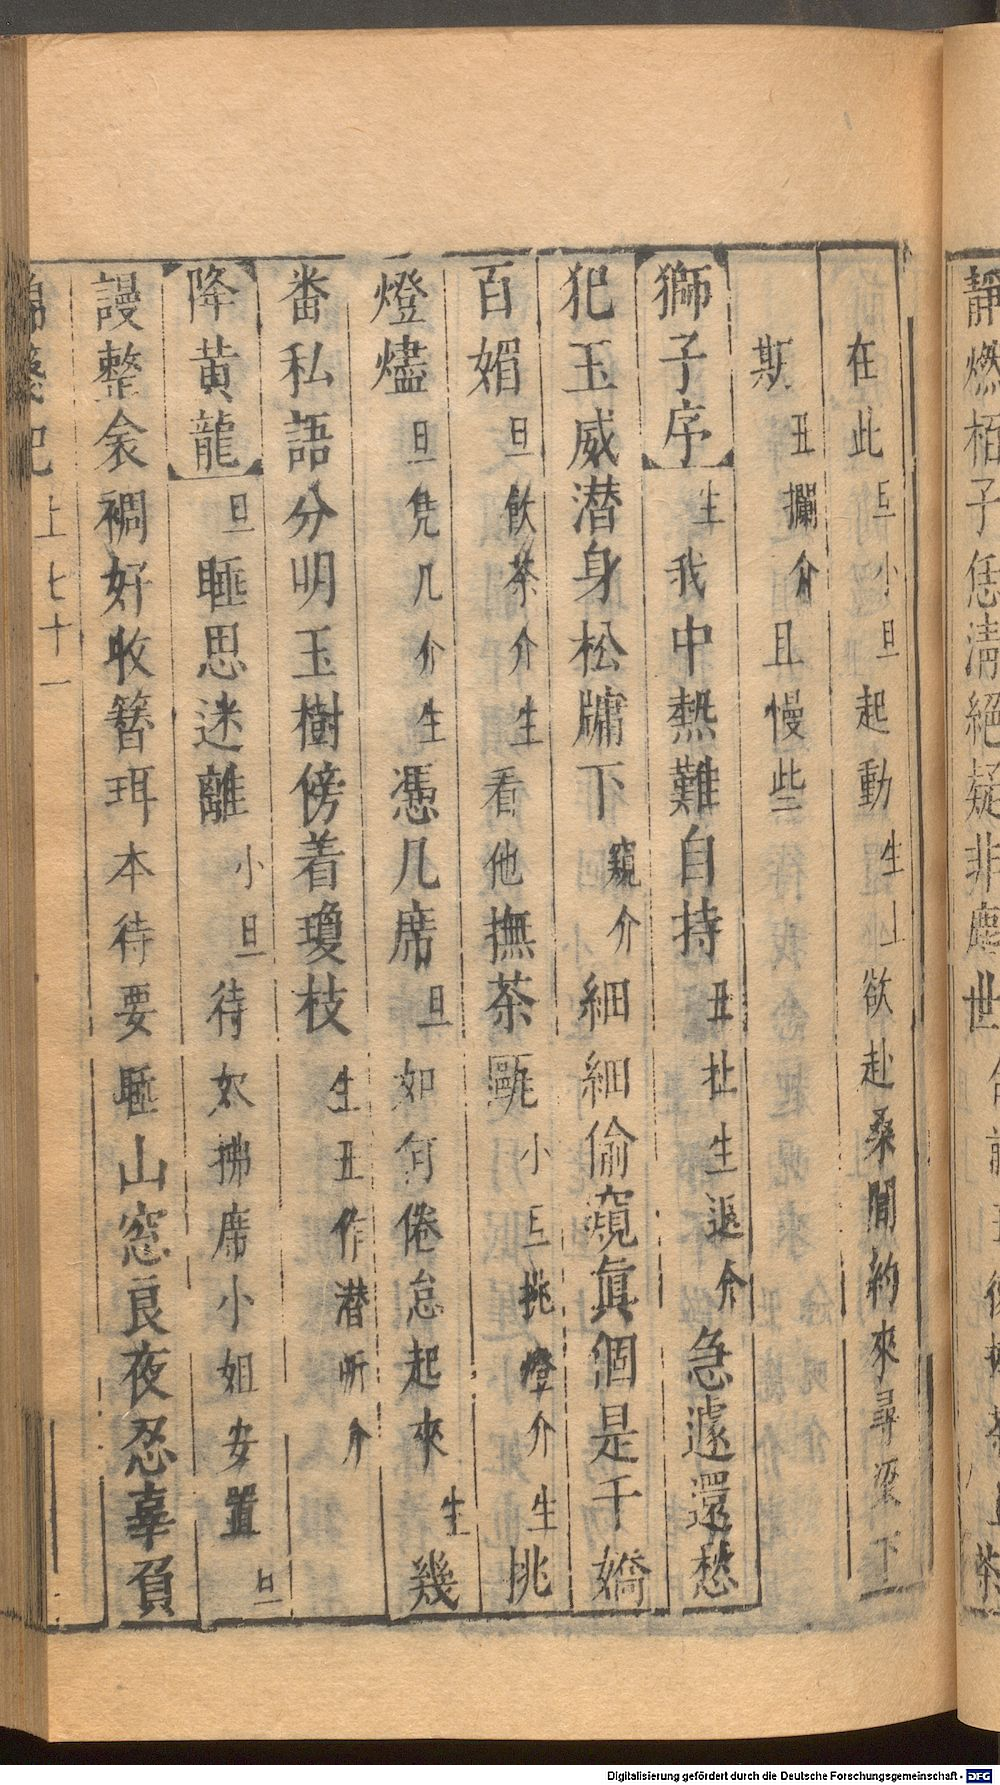 靜燃栢子恁清絕疑非塵世
在此旦小旦起動生上欲赴桑間約來尋梁下
期丑攔介且慢些
獅子序生我中熱難自持丑扯生返介急遽還愁
犯玉威潛身松牗下窺介細細偷窺真個是千嬌
百媚旦飲茶介生看他撫茶甌小旦挑燈介生挑
燈燼旦凭几介生憑几席旦如何倦怠起來生幾
畨私語分明玉樹傍着瓊枝生丑作潛听介
降黃龍旦睡思迷離小旦待奴拂席小姐安置旦
謾整衾裯好收簪珥本待要睡山窓良夜忍辜負
錦箋記 上 七十一
Digitalisierung gefördert durch die Deutsche Forschungsgemeinschaft - DFG